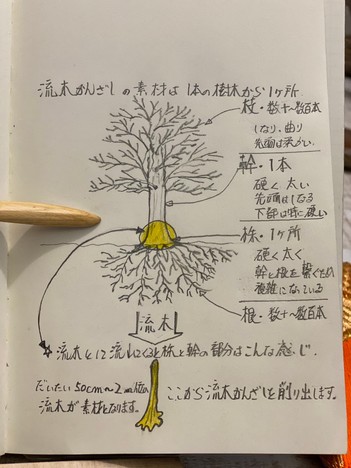 流木かんざしの素材は1本の樹木から1ヶ所
枝・数十〜数百本
しなり、曲り
先端は柔かい
幹・1本
硬く太い
先端はしなる
下部は特に硬い
株・1ヶ所
硬く太く
幹と根を繋ぐため
複雑になっている
根・数十〜数百本
流木
☆流木として流れてくると株と幹の部分はこんな感じ.
だいたい50cm〜2m位の
流木が素材となります。
ここから流木かんざしを削り出します。